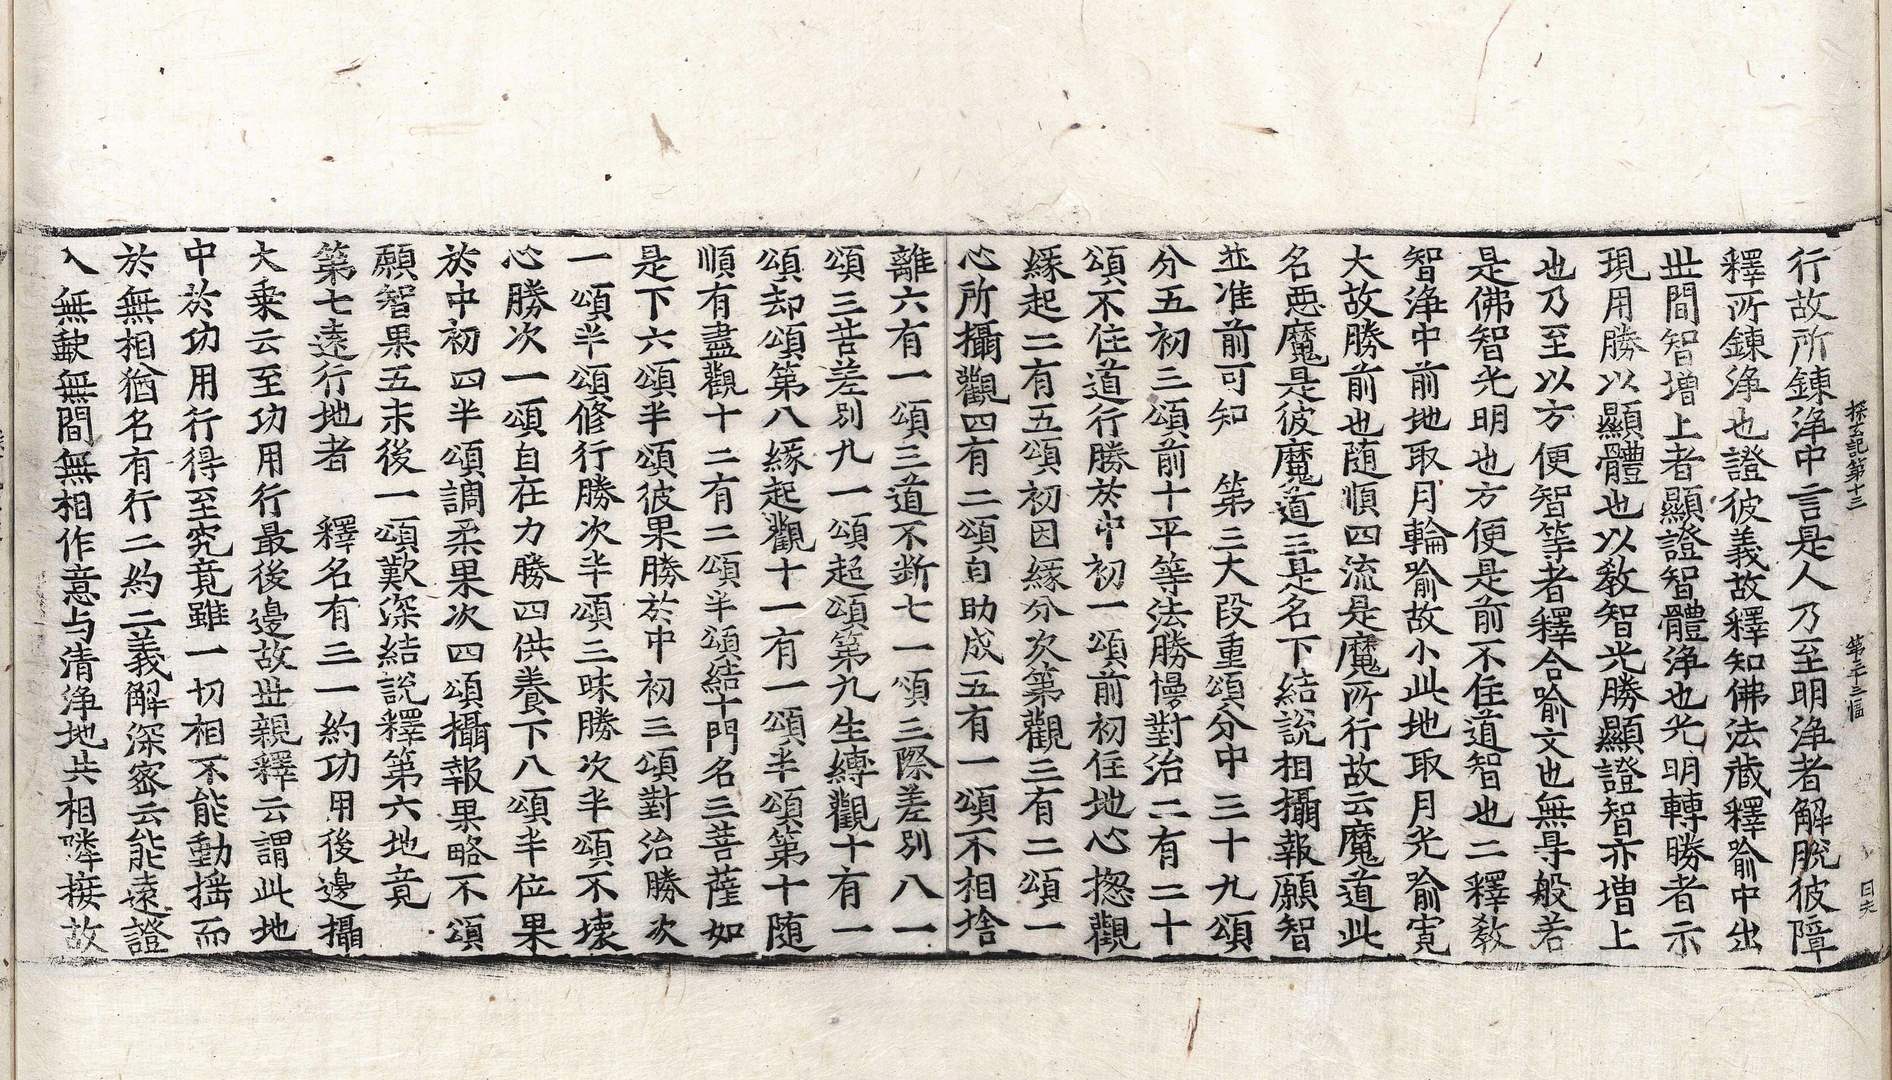 探玄記第十三　第三十三幅　曰夫
行故所鍊浄中言是人乃至明浄者解脫彼障
釋所鍊浄也證彼義故釋知佛法藏釋喻中出
世間智增上者顯證智體浄也光明轉勝者示
現用勝以顯體也以敎智光勝顯證智亦增上
也乃至以方便智等者釋合喻文也無㝵般若
是佛智光明也方便是前不住道智也二釋敎
智浄中前地取月輪喻故小此地取月光喻寬
大故勝前也随順四流是魔所行故云魔道此
名惡魔是彼魔道三是名下結說相攝報願智
並准前可知　第三大段重頌分中三十九頌
分五初三頌前十平等法勝慢對治二有二十
頌不住道行勝於中初一頌前初住地心揔觀
緣起二有五頌初因緣分次第觀三有二頌一
心所攝觀四有二頌自助成五有一頌不相捨
離六有一頌三道不断七一頌三際差别八一
頌三苦差别九一頌超頌第九生縛觀十有一
頌却頌第八緣起觀十一有一頌半頌第十随
順有盡觀十二有二頌半頌結十門名三菩薩如
是下六頌半頌彼果勝於中初三頌對治勝次
一頌半頌修行勝次半頌三昧勝次半頌不壊
心勝次一頌自在力勝四供養下八頌半位果
於中初四半頌調柔果次四頌攝報果略不頌
願智果五末後一頌歎深結說釋第六地竟
第七遠行地者　釋名有三一約功用後邊攝
大乗云至功用行最後邊故世親釋云謂此地
中於功用行得至究竟雖一切相不能動揺而
於無相猶名有行二約二義解深密云能遠證
入無䡖無間無相作意与清浄地共相隣接故